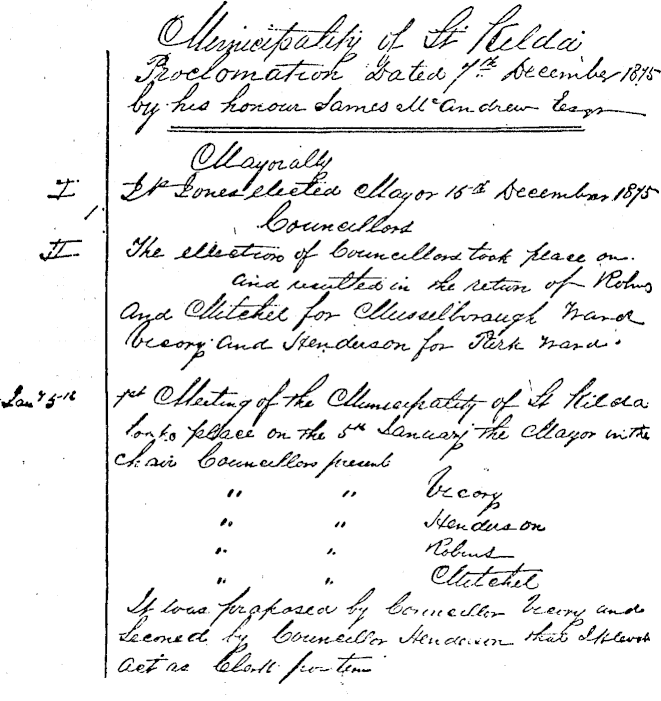 Municipality of St Kilda
Proclomation Dated 7th December 1875
by his honour James McAndrew Esqr
Mayorally
I Jones elected Mayor 15th December 1875
Councillors
II The election of Councillors took place on
and resulted in the return of Robins
and Mitchel for Musselborough Ward
Vecory and Henderson for Park Ward.
Jany 5th 1st Meeting of the Municipality of St Kilda
took place on the 5th January the Mayor in the
chair Councillors present
" " Vecory
" " Henderson
" " Robins
" " Mitchel
It was proposed by Councillor Vecory and
Seconed by Councillor Henderson that
act as Clerk pro tem